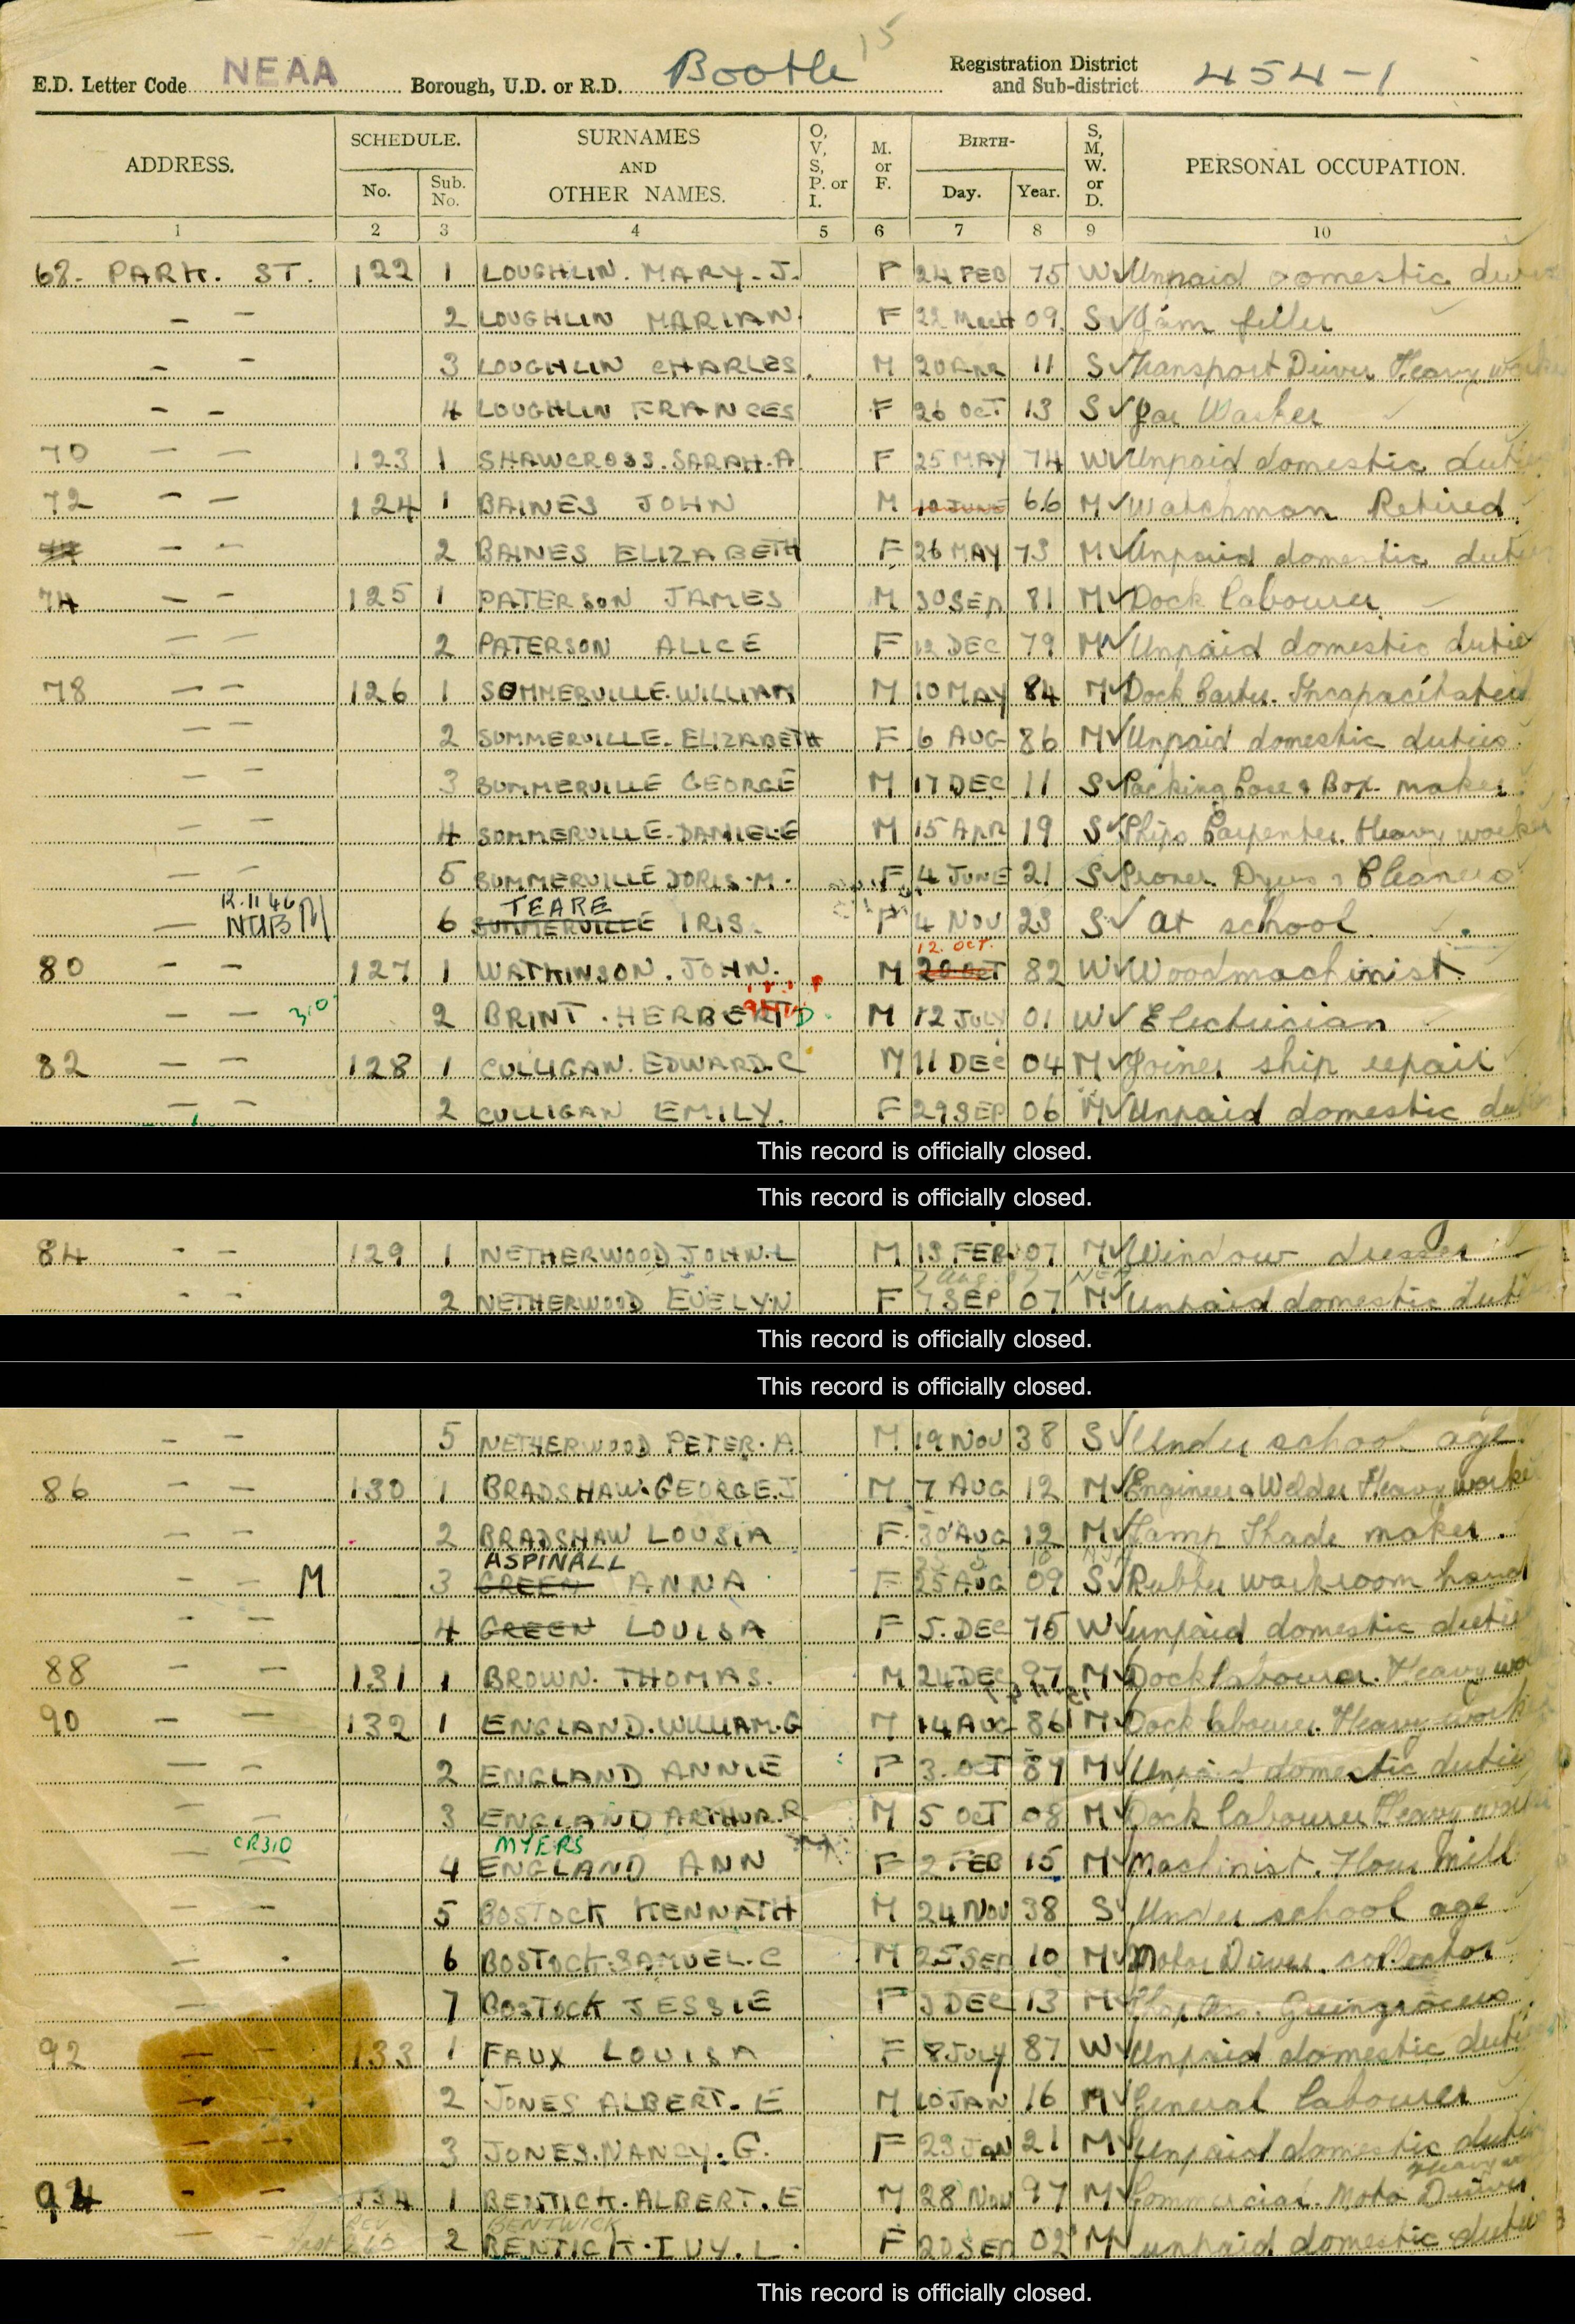 15
E.D. Letter Code NEAA Borough, U.D. or R.D. Bootle Registration District and Sub-district 454-1
ADDRESS. SCHEDULE. No. Sub. No. SURNAMES AND OTHER NAMES. O, V, S, P. or I. M. or F. BIRTH- Day. Year. S, M, W. or D. PERSONAL OCCUPATION.
1 2 3 4 5 6 7 8 9 10
68. PARK. ST. 122 1 LOUGHLIN. MARY. J. F 24 FEB 75 W Unpaid domestic duties
- - 2 LOUGHLIN MARIAN F 22 March 09 S Jam filler
- - 3 LOUGHLIN CHARLES M 20 APR 11 S Transport Driver Heavy worker
- - 4 LOUGHLIN FRANCES F 26 OCT 13 S Jar Washer
70 - - 123 1 SHAWCROSS. SARAH. A F 25 MAY 74 W Unpaid domestic duties
72 - - 124 1 BAINES JOHN M 10 JUNE 66 M Watchman Retired
- - 2 BAINES ELIZABETH F 26 MAY 73 M Unpaid domestic duties
74 - - 125 1 PATERSON JAMES M 30 SEP 81 M Dock labourer
- - 2 PATERSON ALICE F 12 DEC 79 M Unpaid domestic duties
78 - - 126 1 SOMMERVILLE. WILLIAM M 10 MAY 84 M Dock Carter. Incapacitated
- - 2 SUMMERVILLE. ELIZABETH F 6 AUG 86 M Unpaid domestic duties
- - 3 SUMMERVILLE GEORGE M 17 DEC 11 S Packing Case & Box maker
- - 4 SOMMERVILLE. DANIELE M 15 APR 19 S Ships Carpenter. Heavy worker
- - 5 SUMMERVILLE DORIS. M. F 4 JUNE 21 S Dyers & Cleaners
12.11.46 TEARE
- NUB M 6 SUMMERVILLE IRIS. F 4 NOV 23 S at school
12. OCT.
80 - - 127 1 WATKINSON. JOHN. M 20 OCT 82 W Woodmachinist.
- - 310 2 BRINT. HERBERT D. M 12 JULY 01 W Electrician
82 - - 128 1 CULLIGAN. EDWARD. C M 11 DEC 04 M Joiner ship repair
- - 2 CULLIGAN EMILY. F 29 SEP 06 M Unpaid domestic duties
This record is officially closed.
This record is officially closed.
84 - - 129 1 NETHERWOOD JOHN. L M 13 FEB 07 M Window dresser
7 Aug. 07
- - 2 NETHERWOOD EVELYN F 7 SEP 07 M Unpaid domestic duties
This record is officially closed.
This record is officially closed.
- - 5 NETHERWOOD PETER. A M 19 NOV 38 S Under school age
86 - - 130 1 BRADSHAW. GEORGE. J M 7 AUG 12 M Engineer & Welder Heavy worker
- - 2 BRADSHAW LOUSIA F 30 AUG 12 M Lamp Shade maker.
ASPINALL
- - M 3 GREEN ANNA F 25 AUG 09 S Rubber workroom hand
- - 4 GREEN LOUISA F 5. DEC 75 W unpaid domestic duties
88 - - 131 1 BROWN. THOMAS. M 24 DEC 97 M Dock labourer. Heavy worker
90 - - 132 1 ENGLAND. WILLIAM. G M 14 AUG 86 M Dock labourer. Heavy worker
- - 2 ENGLAND ANNIE F 3. OCT 89 M Unpaid domestic duties
- - 3 ENGLAND ARTHUR. R M 5 OCT 08 M Dock labourer Heavy worker
CR310 MYERS
- - 4 ENGLAND ANN F 2 FEB 15 M Machinist. Flour Mill
- - 5 BOSTOCK KENNATH M 24 NOV 38 S Under school age
- 6 BOSTOCK. SAMUEL. C M 25 SEP 10 M Motor Driver. collector
- 7 BOSTOCK JESSIE F 3 DEC 13 M Shop Ass. Greengrocers
92 - - 133 1 FAUX LOUISA F 8 JULY 87 W Unpaid domestic duties
- - 2 JONES ALBERT. E M 10 JAN 16 M General labourer
- - 3 JONES. NANCY. G. F 23 JAN 21 M Unpaid domestic duties
Heavy
94 - - 134 1 BENTICK. ALBERT. E M 28 Nov 97 M Commercial Motor Driver
REV BENTWICK
- - 2 BENTICK. IVY. L. F 20 SEP 02 M unpaid domestic duties
This record is officially closed.